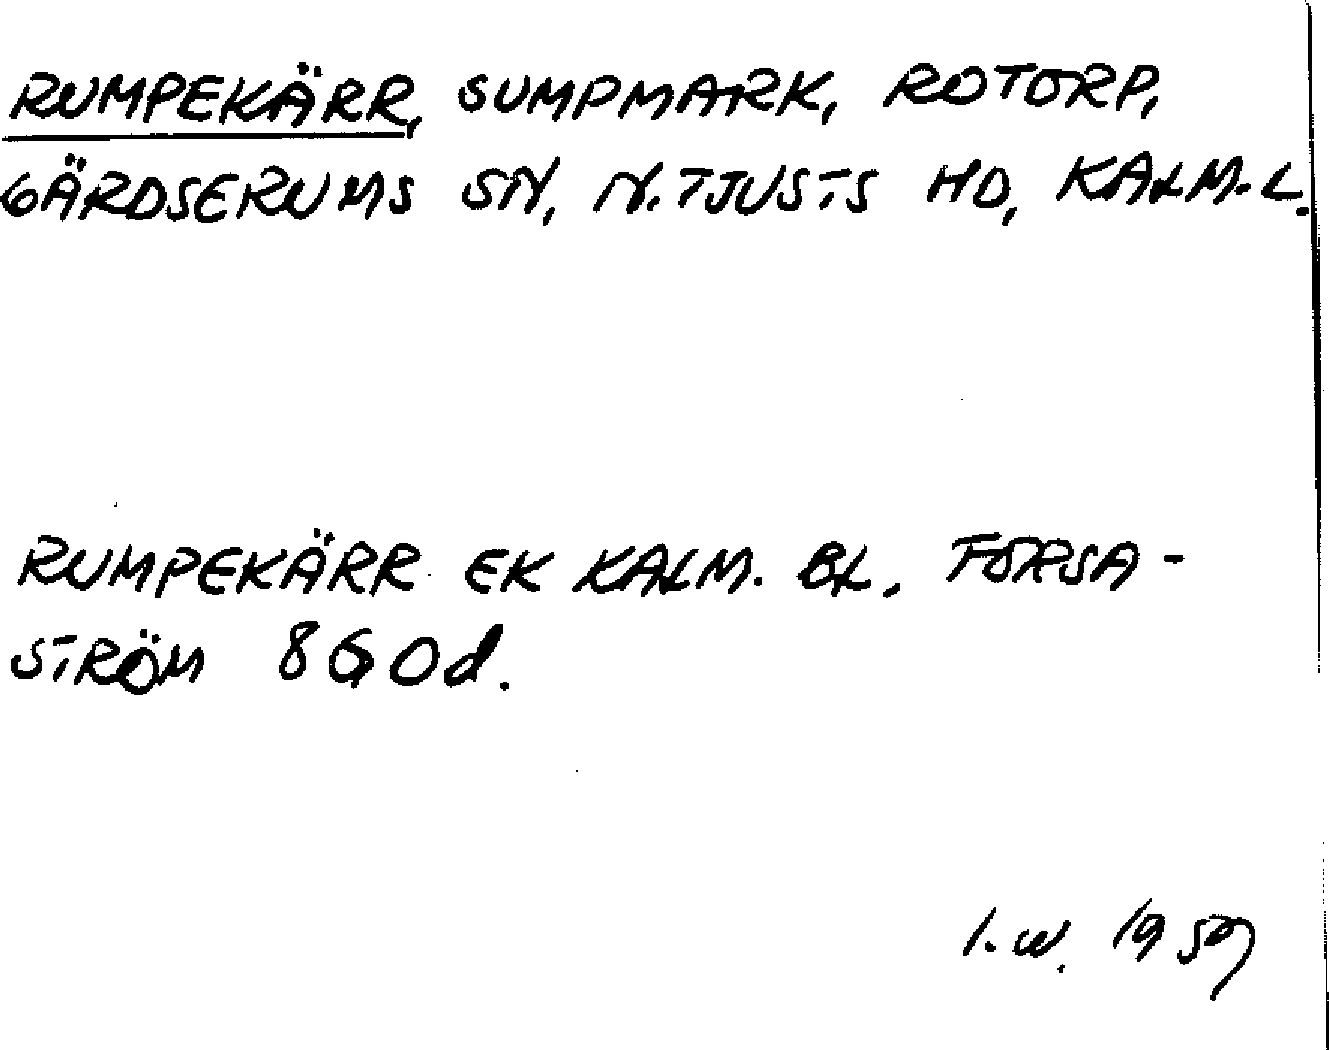 RUMPEKÄRR, SUMPMARK, ROTORP,
GÄRDSERUMS SN, N. TJUSTS HD, KALM. L.
RUMPEKÄRR EK KALM. BL. FORSA-
STRÖM 8G0d.
I. W. 1959